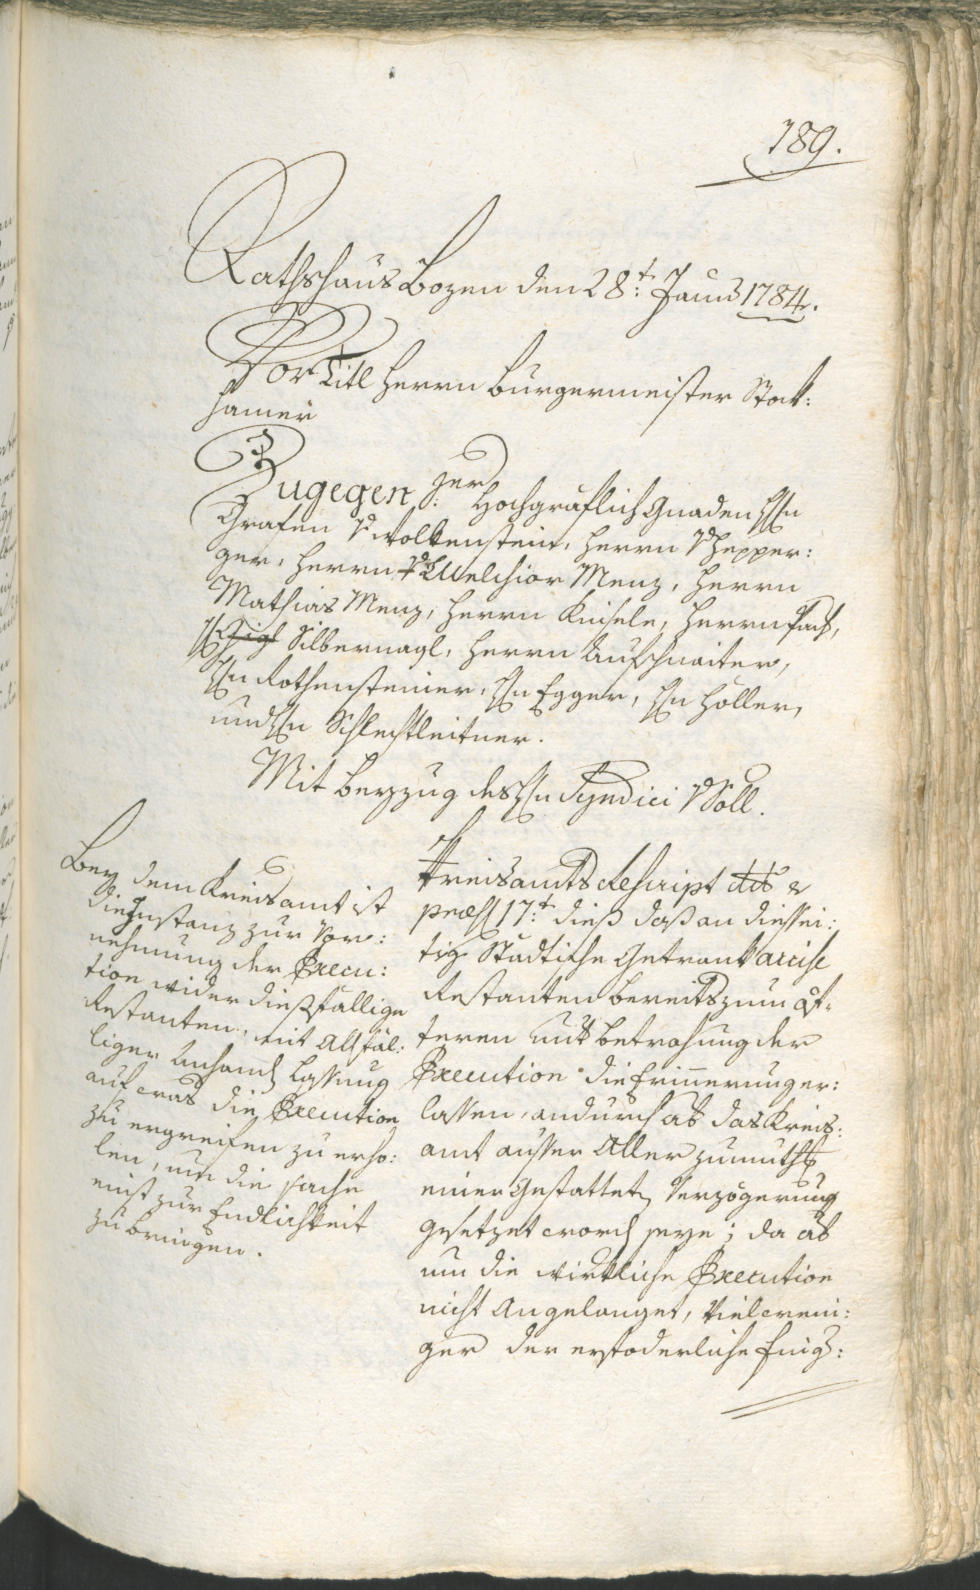 189.
Rathshaus Bozen den 28t: Junÿ 1784.
Vor Titl Herrn Burgermeister Stock:
hamer
Zugegen Jer: Hochgräflich Gnaden Hn
Grafen v Wolkenstein, Herrn v Hepper:
ger, Herrn v Melchior Menz, Herrn
Mathias Menz, Herrn Kinsele, Herrn Pach,
H Silbernagl, Herrn Aufschnaiter,
Hn Rothensteiner, Hn Egger, Hn Holler,
und Hn Schlechtleitner.
Mit beyzug des Hn Syndici v Söll.
Bey dem Kreisamt ist
die Instanz zur Vor:
nehmung der Execu:
tion wider diesfällige
Restanten, mit allfäl:
liger Anhand Lassung
auf was die Execution
zu ergreifen zu erho:
len, um die sache
einst zur Endlichkeit
zu bringen.
Kreisamts Rescript dto &
præs 17t: dieß daß an diessei:
tig Städtische Getrank accise
Restanten bereits zum öf:
teren mit betrohung der
Execution die Erinnerung er:
lassen, andurch als das Kreis:
amt ausser Aller zumuth
einer Gestatteten Verzögerung
gesetzet word seye; da als
um die wirkliche Execution
nicht Angelanget, Vielweni:
ger der erfoderliche fing: